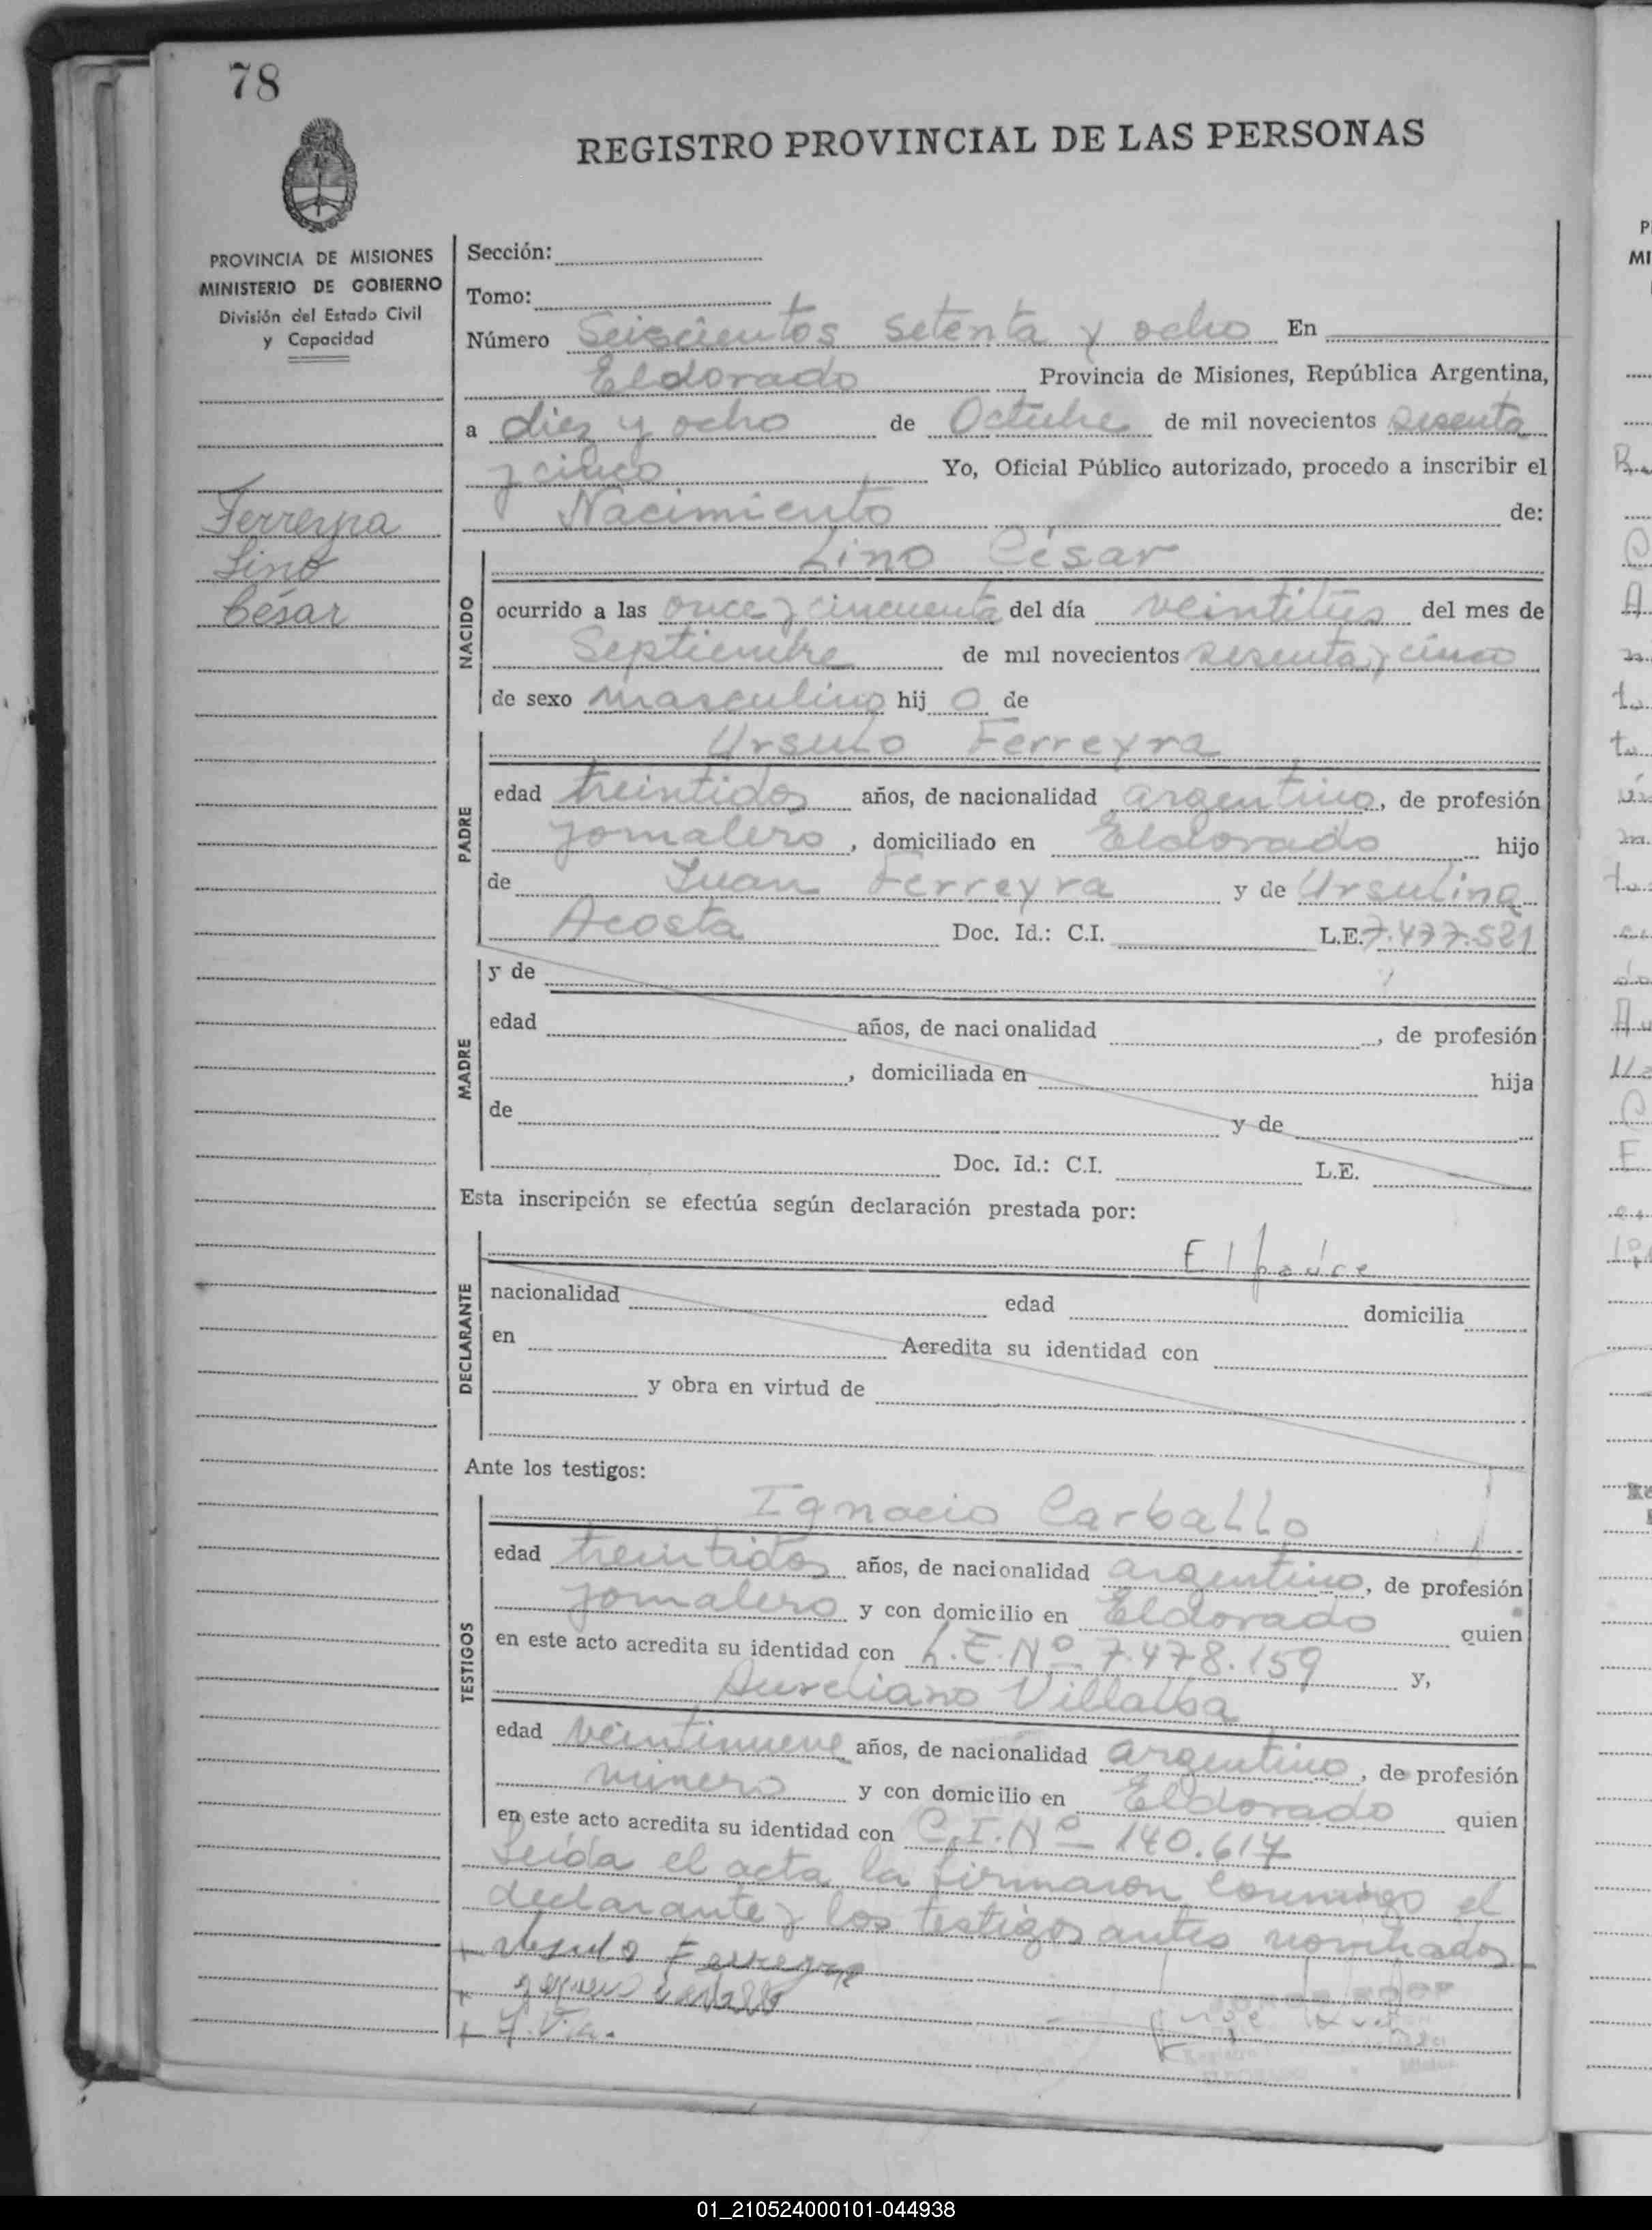 78
REGISTRO PROVINCIAL DE LAS PERSONAS
PROVINCIA DE MISIONES
MINISTERIO DE GOBIERNO
División del Estado Civil
y Capacidad
Ferreyra
Lino
César
Sección:
Tomo:
Número Seiscientos setenta y ocho En
Eldorado Provincia de Misiones, República Argentina,
a diez y ocho de Octubre de mil novecientos sesenta
y cinco Yo, Oficial Público autorizado, procedo a inscribir el
Nacimiento de:
NACIDO
Lino César
ocurrido a las once y cincuenta del día veintitres del mes de
Septiembre de mil novecientos sesenta y cinco
de sexo masculino hij o de
PADRE
Ursulo Ferreyra
edad treintidos años, de nacionalidad argentino, de profesión
jornalero, domiciliado en Eldorado hijo
de Juan Ferreyra y de Ursulina
Acosta Doc. Id.: C.I. L.E. 7.477.521
MADRE
y de
edad años, de nacionalidad , de profesión
, domiciliada en hija
de y de
Doc. Id.: C.I. L.E.
Esta inscripción se efectúa según declaración prestada por:
DECLARANTE
El padre
nacionalidad edad domicilia
en Acredita su identidad con
y obra en virtud de
Ante los testigos:
TESTIGOS
Ignacio Carballo
edad treintidos años, de nacionalidad argentino, de profesión
jornalero y con domicilio en Eldorado quien
en este acto acredita su identidad con L.E.Nº 7.478.159 y,
Aureliano Villalba
edad veintinueve años, de nacionalidad argentino, de profesión
minero y con domicilio en Eldorado quien
en este acto acredita su identidad con C.I.Nº 140.617
Leída el acta la firmaron conmigo el
declarante y los testigos antes nombrados
+ Ursulo Ferreyra
+
+
01_210524000101-044938